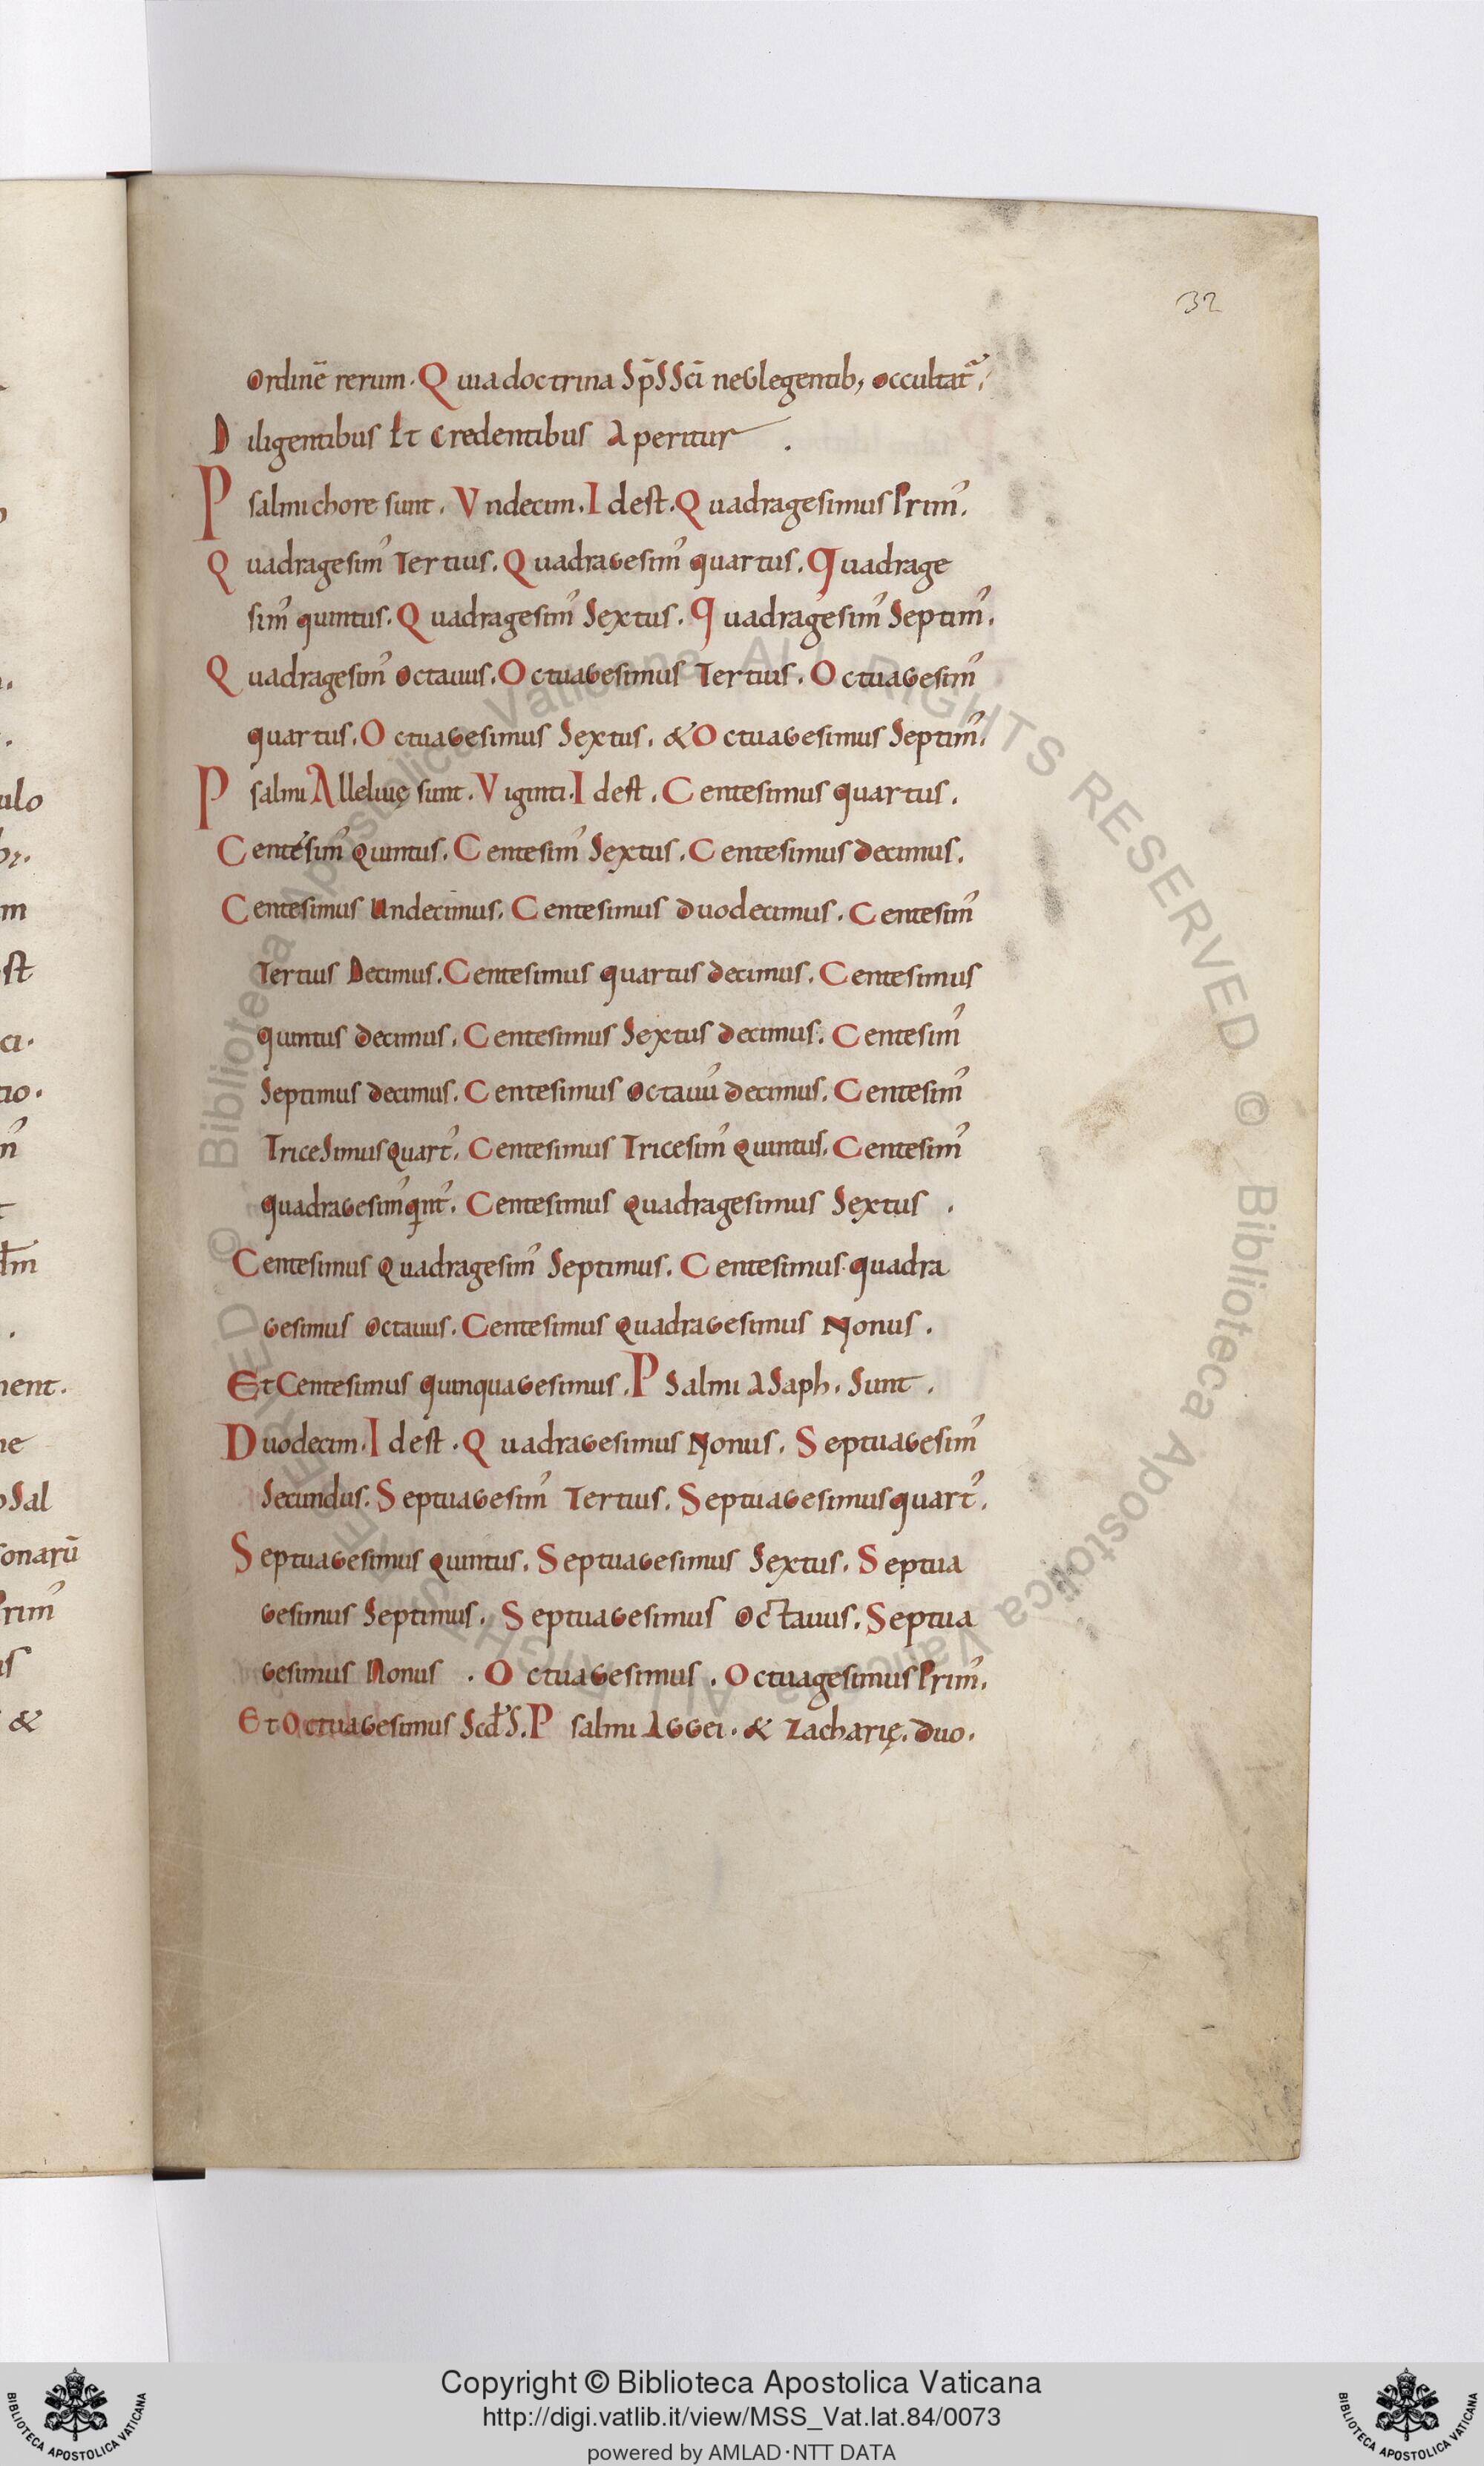 32
Ordinē rerum. Quia doctrina Sp̄s Sc̄i neglegentib; occultat᷑.
Diligentibus Et Credentibus Aperitur .
Psalmi chore sunt. Vndecim. Idest. Quadragesimus Prim᾽.
Quadragesim᾽ Tertius. Quadragesim᾽ quartus. Quadrage
sim᾽ quintus. Quadragesim᾽ Sextus. Quadragesim᾽ Septim᾽.
Quadragesim᾽ Octauus. Octuagesimus Tertius. Octuagesim᾽
quartus. Octuagesimus Sextus. & Octuagesimus Septim᾽.
Psalmi Alleluię sunt. Viginti. Idest. Centesimus quartus.
Centesim᾽ Quintus. Centesim᾽ Sextus. Centesimus decimus.
Centesimus Undecimus. Centesimus duodecimus. Centesim᾽
Tertius Decimus. Centesimus quartus decimus. Centesimus
quintus decimus. Centesimus Sextus decimus. Centesim᾽
Septimus decimus. Centesimus Octauu᾽ decimus. Centesim᾽
TriceSimus Quart᾽. Centesimus Tricesim᾽ Quintus. Centesim᾽
quadragesim᾽ qint᾽. Centesimus Quadragesimus Sextus .
Centesimus Quadragesim᾽ Septimus. Centesimus. quadra
gesimus Octauus. Centesimus Quadragesimus Nonus.
Et Centesimus quinquagesimus. PSalmi ASaph. Sunt.
Duodecim. Idest. Quadragesimus Nonus. Septuagesim᾽
Secundus. Septuagesim᾽ Tertius. Septuagesimus quart᾽.
Septuagesimus Quintus. Septuagesimus Sextus. Septua
gesimus Septimus. Septuagesimus Octauus. Septua
gesimus Nonus . Octuagesimus. Octuagesimus Prim᾽.
Et Octuagesimus Scd̄s. Psalmi Aggei. & Zacharię. duo.
ulo
m
st
ci.
tio.
nent.
ne
Sal
sonarū
Prim᾽
&
© Biblioteca Apostolica Vaticana ALL RIGHTS RESERVED © Biblioteca Apostolica Vaticana ALL RIGHTS RESERVED
Copyright © Biblioteca Apostolica Vaticana
http://digi.vatlib.it/view/MSS_Vat.lat.84/0073
powered by AMLAD·NTT DATA
BIBLIOTECA APOSTOLICA VATICANA
BIBLIOTECA APOSTOLICA VATICANA